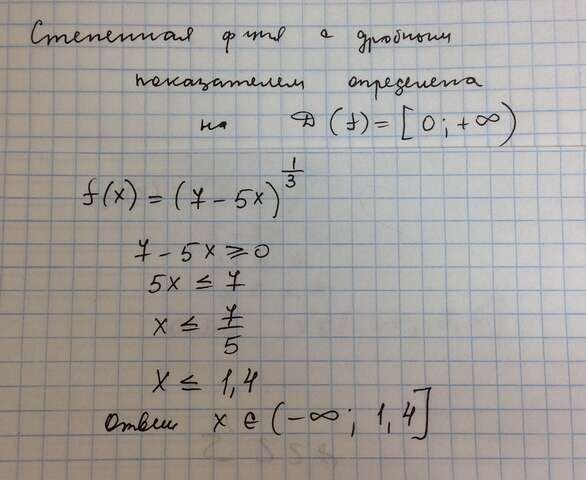 Степенная ф-ция с дробным
показателем определена
на D(f) = [0; +∞)
f(x) = (7 - 5x)^{1/3}
7 - 5x ≥ 0
5x ≤ 7
x ≤ 7/5
x ≤ 1,4
Ответ x ∈ (-∞; 1,4]